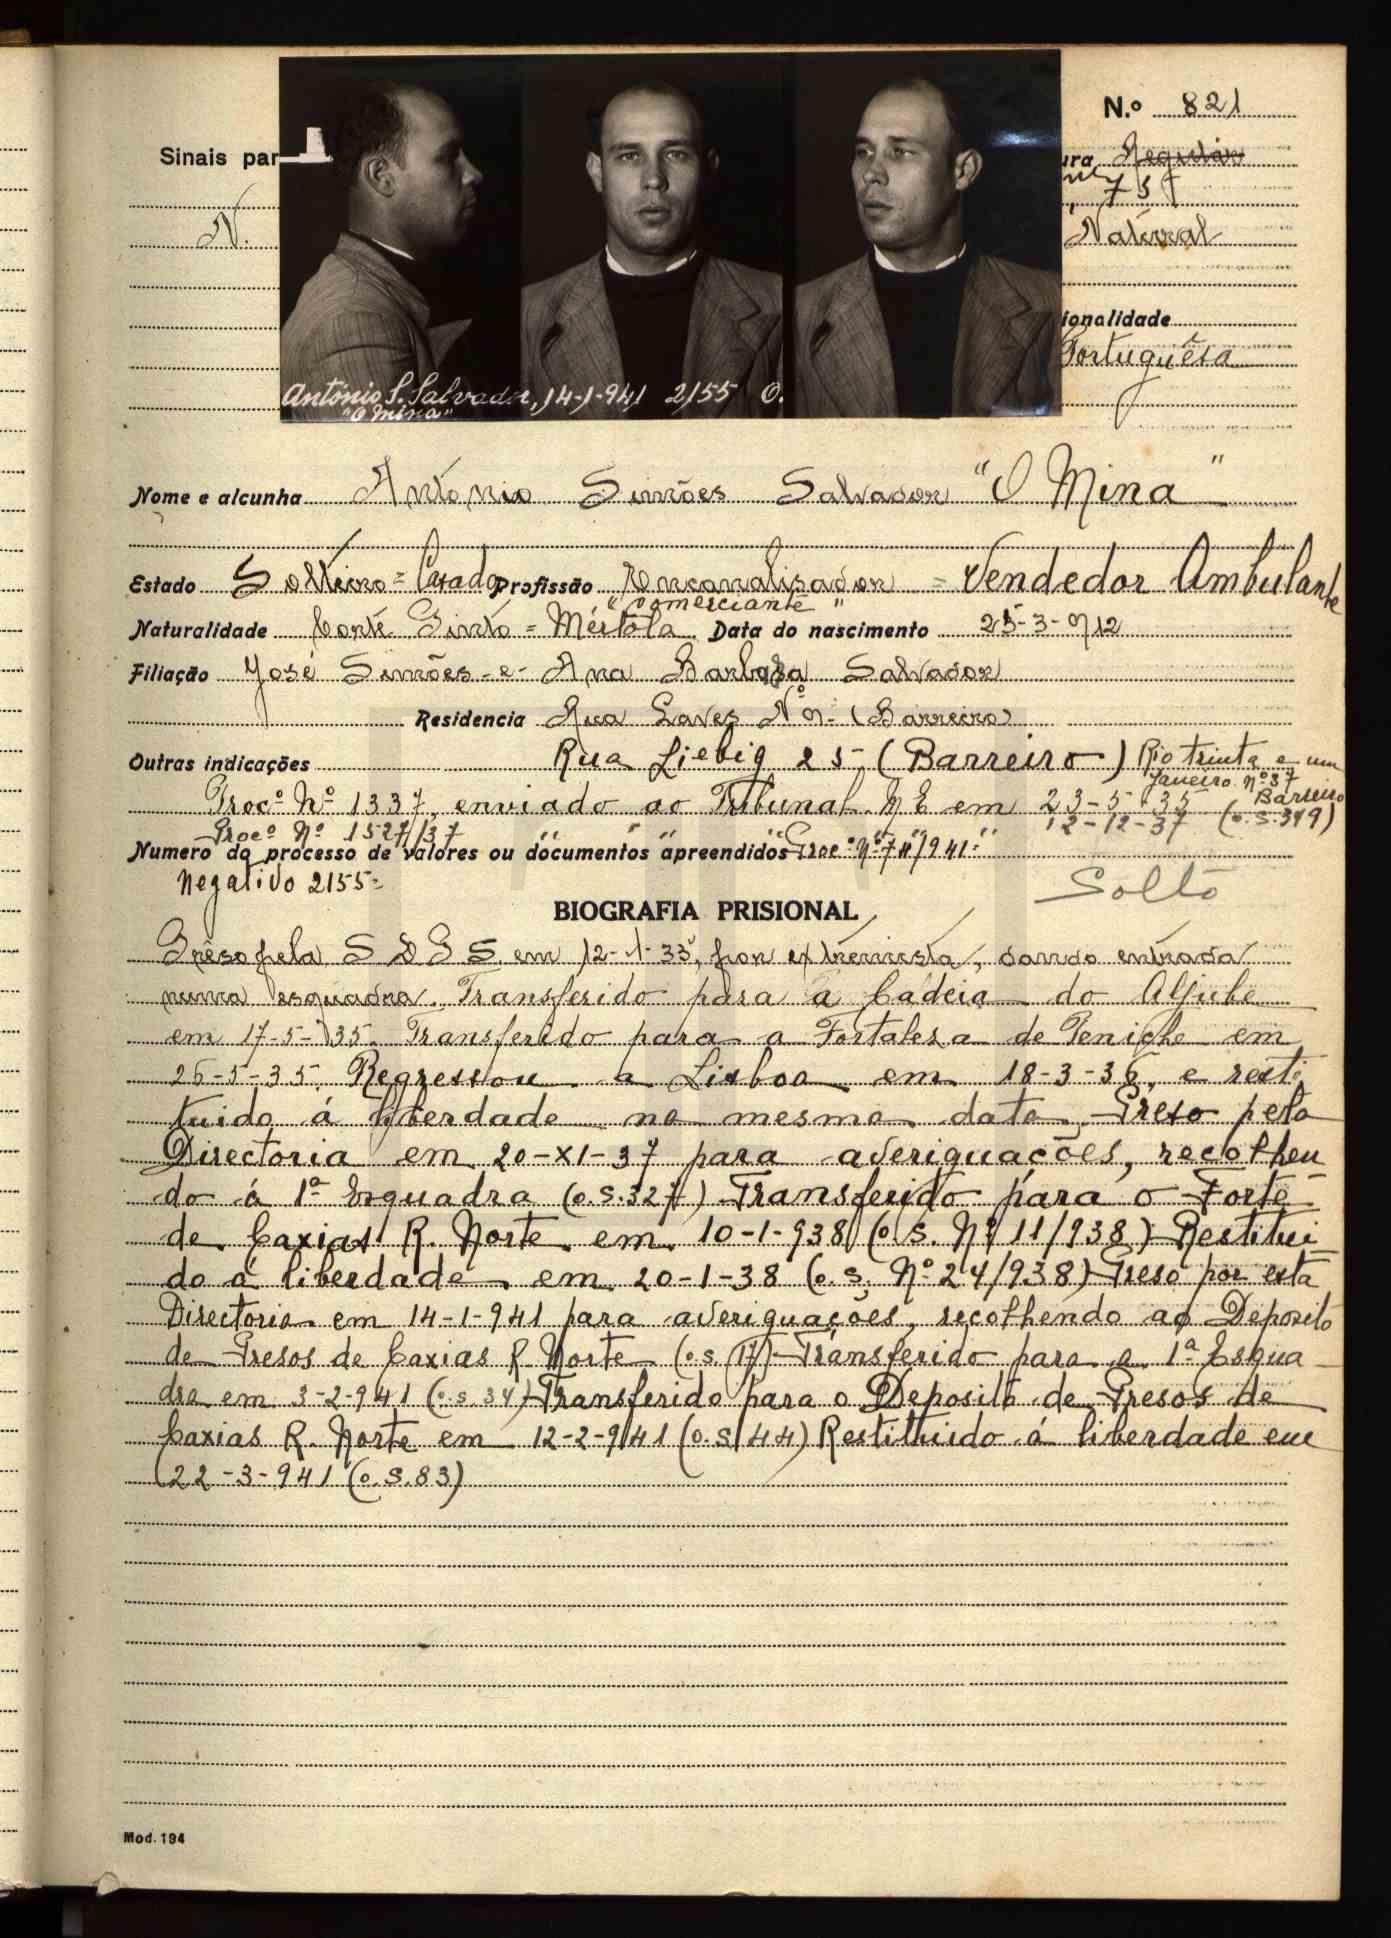 N.º 821
Sinais par
ura Regular
1, 75
N.
Natural
ionalidade
Portuguêsa
António S. Salvador, 14-1-941 2155 O.
"O Mina"
Nome e alcunha António Simões Salvador "O Mina"
Estado Solteiro = Casado Profissão Encanalisador = Vendedor Ambulante
"Comerciante"
Naturalidade Corte Pinto = Mértola Data do nascimento 25-3-912
Filiação José Simões - e - Ana Barbosa Salvador
Residencia Rua Nº 9 - (Barreiro)
Outras indicações Rua Liebig 25 (Barreiro) Rio trinta e um
Janeiro nº 37
Barreiro
Procº Nº 1337, enviado ao Tribunal M E em 23-5-35
Procº Nº 1527/37 " " " " 12-12-37 (o.s.349)
Numero do processo de valores ou documentos apreendidos Procº Nº 74/941=
Negativo 2155=
Solto
BIOGRAFIA PRISIONAL
Prêso pela S D P S em 12-1-35, por extremista, dando entrada
numa esquadra. Transferido para a Cadeia do Aljube
em 17-5-935. Transferido para a Fortaleza de Peniche em
26-5-35. Regressou a Lisboa em 18-3-36, e resti
tuido á liberdade na mesma data. Preso pela
Directoria em 20-XI-37 para averiguações, recolhen
do á 1ª Esquadra (o.s.327) Transferido para o Forte
de Caxias R. Norte em 10-1-938 (o.s. Nº 11/938) Restitui
do á liberdade em 20-1-38 (o.s. Nº 24/938) Preso por esta
Directoria em 14-1-941 para averiguações, recolhendo ao Deposito
de Presos de Caxias R. Norte (o.s. 17) Transferido para a 1ª Esqua
dra em 3-2-941 (o.s. 34) Transferido para o Deposito de Presos de
Caxias R. Norte em 12-2-941 (o.s. 44) Restituido á liberdade em
22-3-941 (o.s.83)
Mod. 194